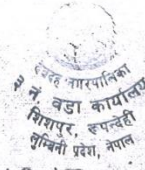 देवदह नगरपालिका
३ नं. वडा कार्यालय
शिशपुर, रूपन्देही
लुम्बिनी प्रदेश, नेपाल